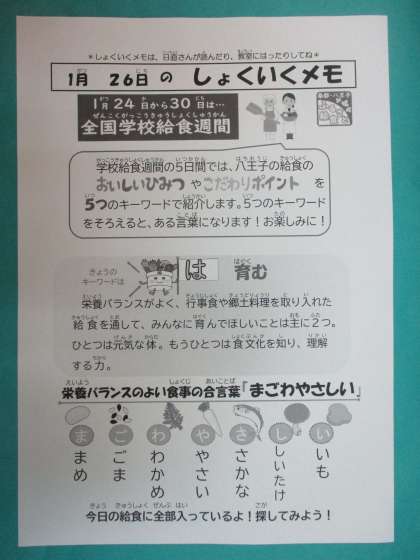 ＊しょくいくメモは、日直さんが読んだり、教室にはったりしてね＊
1月 26日 の しょくいくメモ
1月24日から30日は…
全国学校給食週間
学校給食週間の5日間では、八王子の給食の
おいしいひみつ や こだわりポイント を
5つのキーワードで紹介します。5つのキーワード
をそろえると、ある言葉になります！お楽しみに！
きょうの
キーワードは
は 育む
栄養バランスがよく、行事食や郷土料理を取り入れた
給食を通して、みんなに育んでほしいことは主に2つ。
ひとつは元気な体。もうひとつは食文化を知り、理解
する力。
栄養バランスのよい食事の合言葉「まごわやさしい」
ま ご わ や さ し い
まめ
ごま
わかめ
やさい
さかな
しいたけ
いも
今日の給食に全部入っているよ！探してみよう！